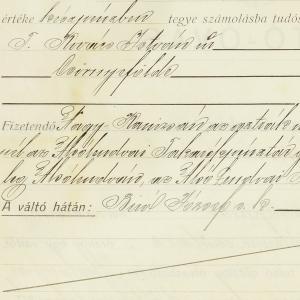 értéke készpénzben tegye számolásba tudós
T. Kovács István úr
Csörnyeföldе
Fizetendő Nagy-Kanizsán az osztrák
nál az Alsólendvai Takarékpénztár
leg Alsólendván, az Alsó Lendvai
A váltó hátán: Bíró József s. k.